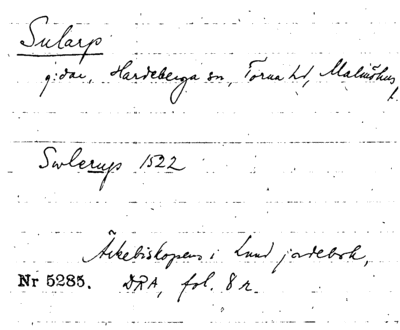 Sularp
gdar, Hardeberga sn, Torna hd, Malmöhus l.
Swlerups 1522
Ärkebiskopens i Lund jordebok,
Nr 5285. DRA, fol. 8 r.